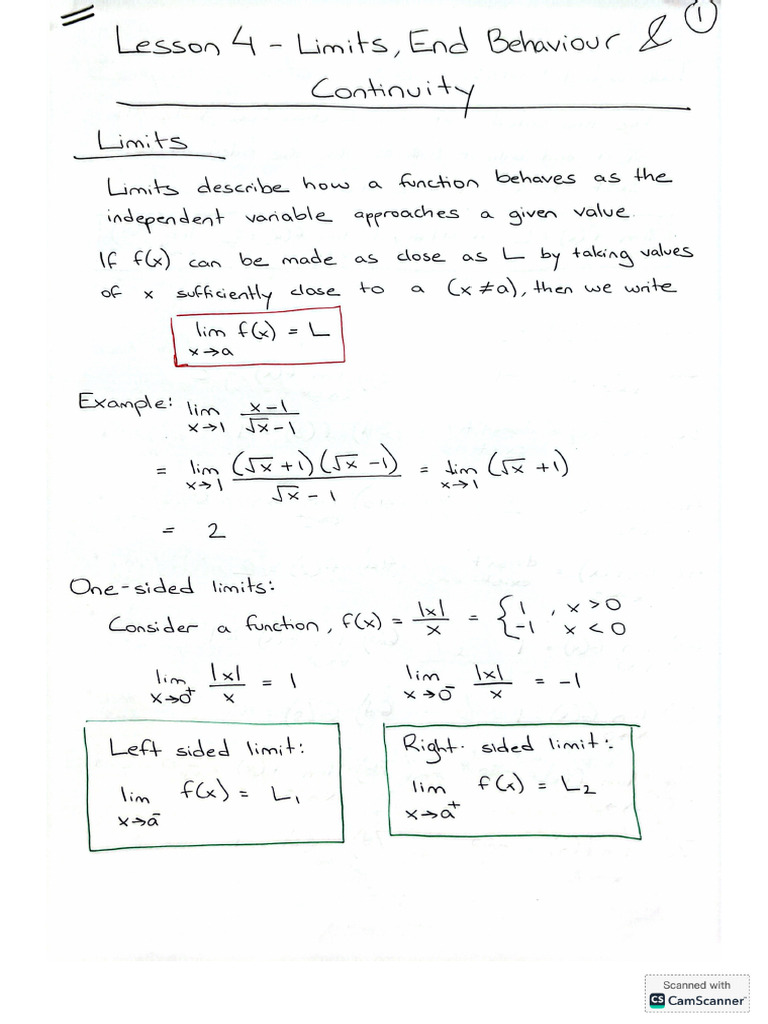 1
Lesson 4 - Limits, End Behaviour &
Continuity
Limits
Limits describe how a function behaves as the
independent variable approaches a given value.
If f(x) can be made as close as L by taking values
of x sufficiently close to a (x ≠ a), then we write
lim f(x) = L
x→a
Example: lim x-1
x→1 √x - 1
= lim (√x + 1)(√x - 1) = lim (√x + 1)
x→1 √x - 1 x→1
= 2
One-sided limits:
Consider a function, f(x) = |x|/x = { 1 , x > 0
-1 x < 0
lim |x|/x = 1 lim |x|/x = -1
x→0⁺ x→0⁻
Left sided limit:
lim f(x) = L₁
x→a⁻
Right sided limit:
lim f(x) = L₂
x→a⁺
Scanned with
CS CamScanner